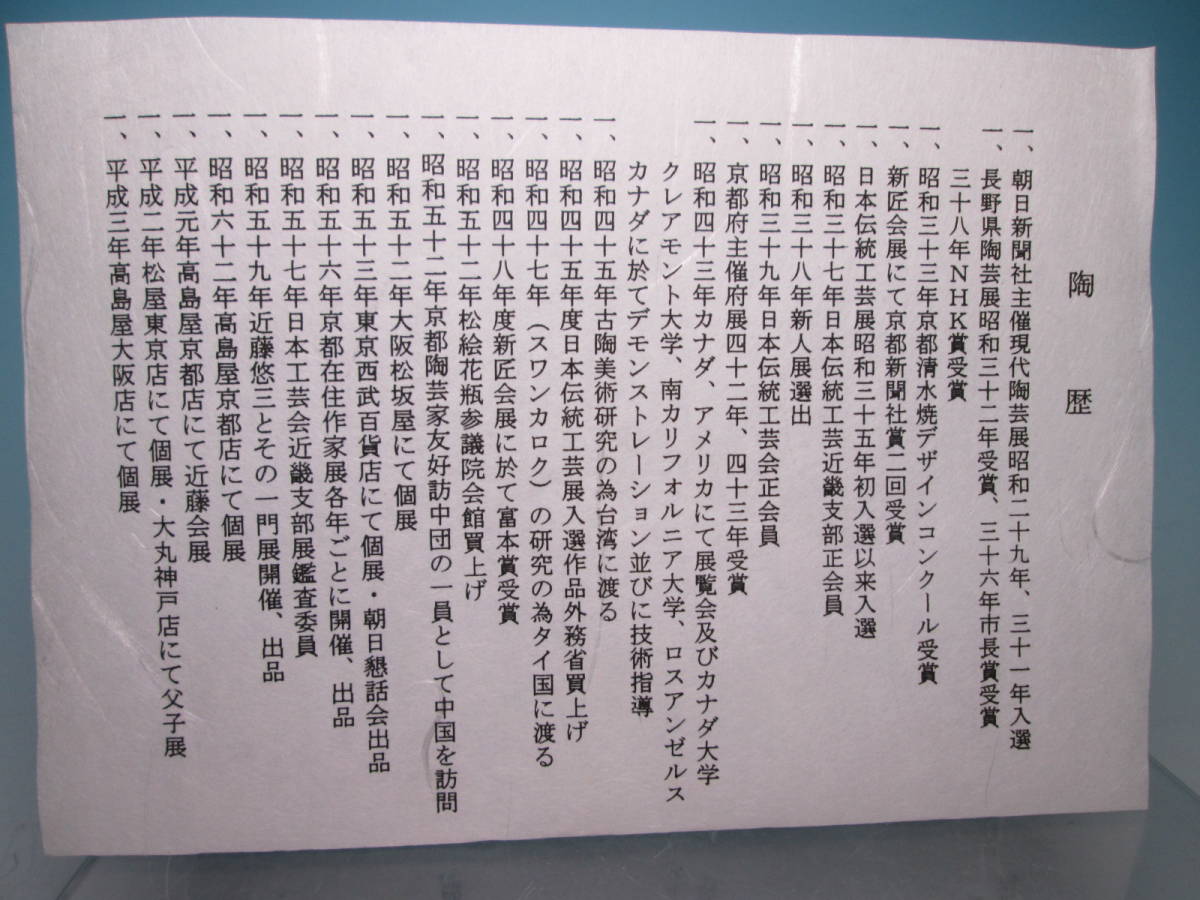 陶歴
一、朝日新聞社主催現代陶芸展昭和二十九年、三十一年入選
一、長野県陶芸展昭和三十二年受賞、三十六年市長賞受賞
三十八年NHK賞受賞
一、昭和三十三年京都清水焼デザインコンクール受賞
一、新匠会展にて京都新聞社賞二回受賞
一、日本伝統工芸展昭和三十五年初入選以来入選
一、昭和三十七年日本伝統工芸近畿支部正会員
一、昭和三十八年新人展選出
一、昭和三十九年日本伝統工芸会正会員
一、京都府主催府展四十二年、四十三年受賞
一、昭和四十三年カナダ、アメリカにて展覧会及びカナダ大学
クレアモント大学、南カリフォルニア大学、ロスアンゼルス
カナダに於てデモンストレーション並びに技術指導
一、昭和四十五年古陶美術研究の為台湾に渡る
一、昭和四十五年度日本伝統工芸展入選作品外務省買上げ
一、昭和四十七年（スワンカロク）の研究の為タイ国に渡る
一、昭和四十八年度新匠会展に於て富本賞受賞
一、昭和五十二年松絵花瓶参議院会館買上げ
一、昭和五十二年京都陶芸家友好訪中団の一員として中国を訪問
一、昭和五十二年大阪松坂屋にて個展
一、昭和五十三年東京西武百貨店にて個展・朝日懇話会出品
一、昭和五十六年京都在住作家展各年ごとに開催、出品
一、昭和五十七年日本工芸会近畿支部展鑑査委員
一、昭和五十九年近藤悠三とその一門展開催、出品
一、昭和六十二年高島屋京都店にて個展
一、平成元年高島屋京都店にて近藤会展
一、平成二年松屋東京店にて個展・大丸神戸店にて父子展
一、平成三年高島屋大阪店にて個展